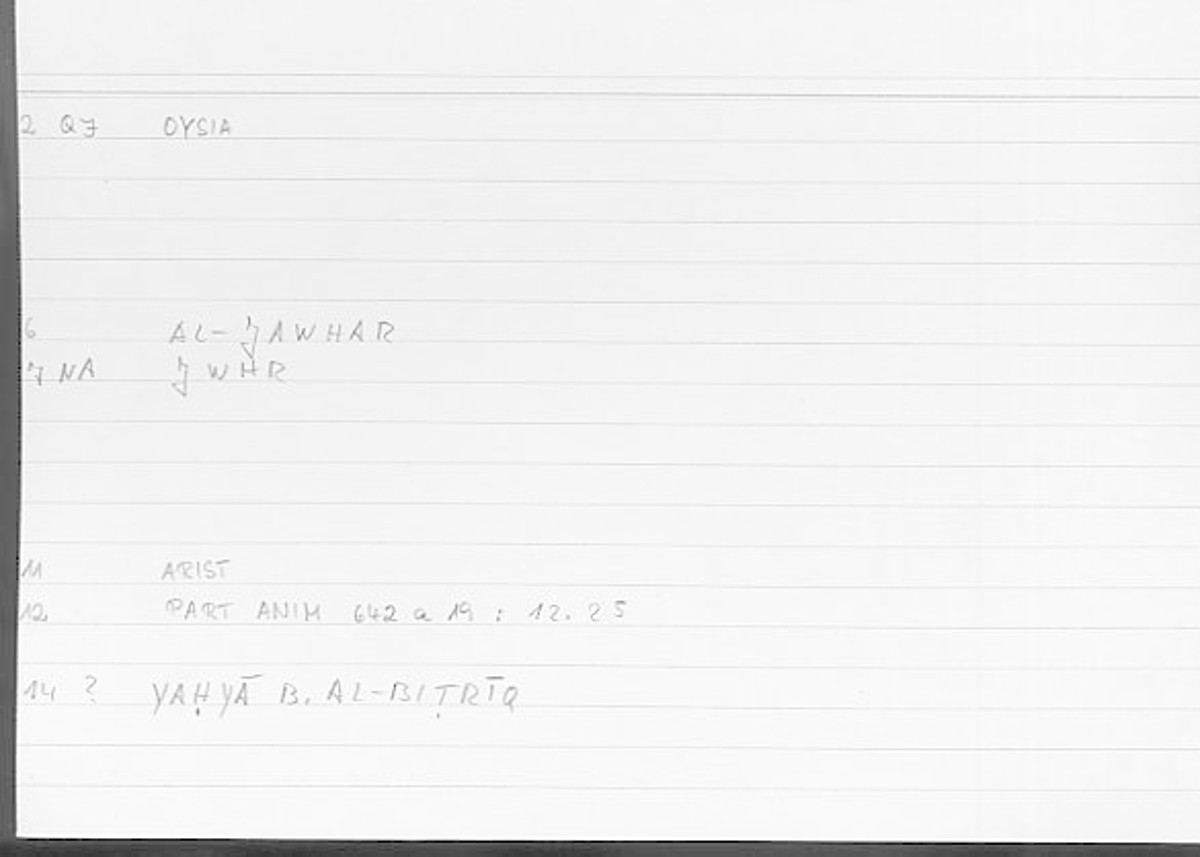 2 QJ OYSIA
6 AL-ǦAWHAR
7 NA ǦWHR
11 ARIST
12 PART ANIM 642 a 19 : 12.25
14 ? YAḤYĀ B. AL-BIṬRĪQ